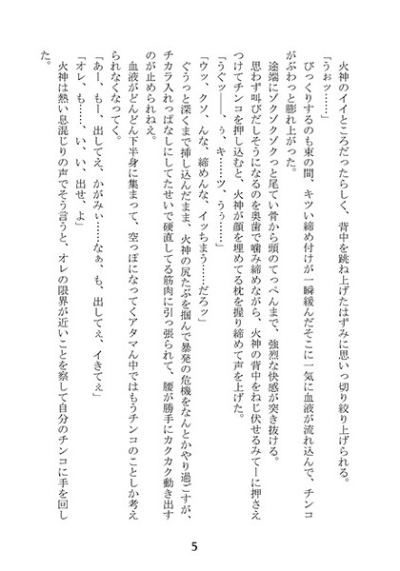 火神のイイところだったらしく、背中を跳ね上げたはずみに思いっ切り絞り上げられる。
「うぉッ……」
　びっくりするのも束の間、キツい締め付けが一瞬緩んだそこに一気に血液が流れ込んで、チンコ
がぶわっと膨れ上がった。
　途端にゾクゾクゾクっと尾てい骨から頭のてっぺんまで、強烈な快感が突き抜ける。
　思わず叫びだしそうになるのを奥歯で噛み締めながら、火神の背中をねじ伏せるみてーに押さえ
つけてチンコを押し込むと、火神が顔を埋めてる枕を握り締めて声を上げた。
「うぐッ――、ぅ、キ……ツ、うぅ……」
「ウッ、クソ、んな、締めんな、イッちまう……だろッ」
　ぐうっと深くまで挿し込んだまま、火神の尻たぶを掴んで暴発の危機をなんとかやり過ごすが、
チカラ入れっぱなしにしてたせいで硬直してる筋肉に引っ張られて、腰が勝手にカクカク動き出す
のが止められねえ。
　血液がどんどん下半身に集まって、空っぽになってくアタマん中ではもうチンコのことしか考え
られなくなってく。
「あー、もー、出してえ、かがみぃ……なぁ、も、出してぇ、イきてぇ」
「オレ、も……、い、い、出せ、よ」
　火神は熱い息混じりの声でそう言うと、オレの限界が近いことを察して自分のチンコに手を回し
た。
5